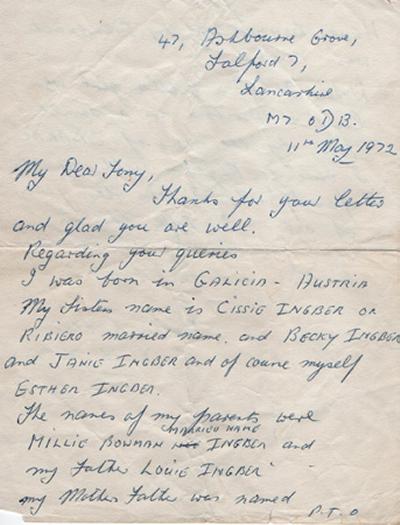 47, Ashbourne Grove,
Salford 7,
Lancashire
M7 0DB.
11th May 1972
My Dear Tony,
Thanks for your letter
and glad you are well.
Regarding your queries
I was born in GALICIA - AUSTRIA
My Sisters name is CISSIE INGBER OR
RIBIERO married name. and BECKY INGBER
and JANIE INGBER and of course myself
ESTHER INGBER.
The names of my parents were
MARRIED NAME
MILLIE BOWMAN INGBER and
my Father LOUIE INGBER
my Mother Father was named
P.T.O